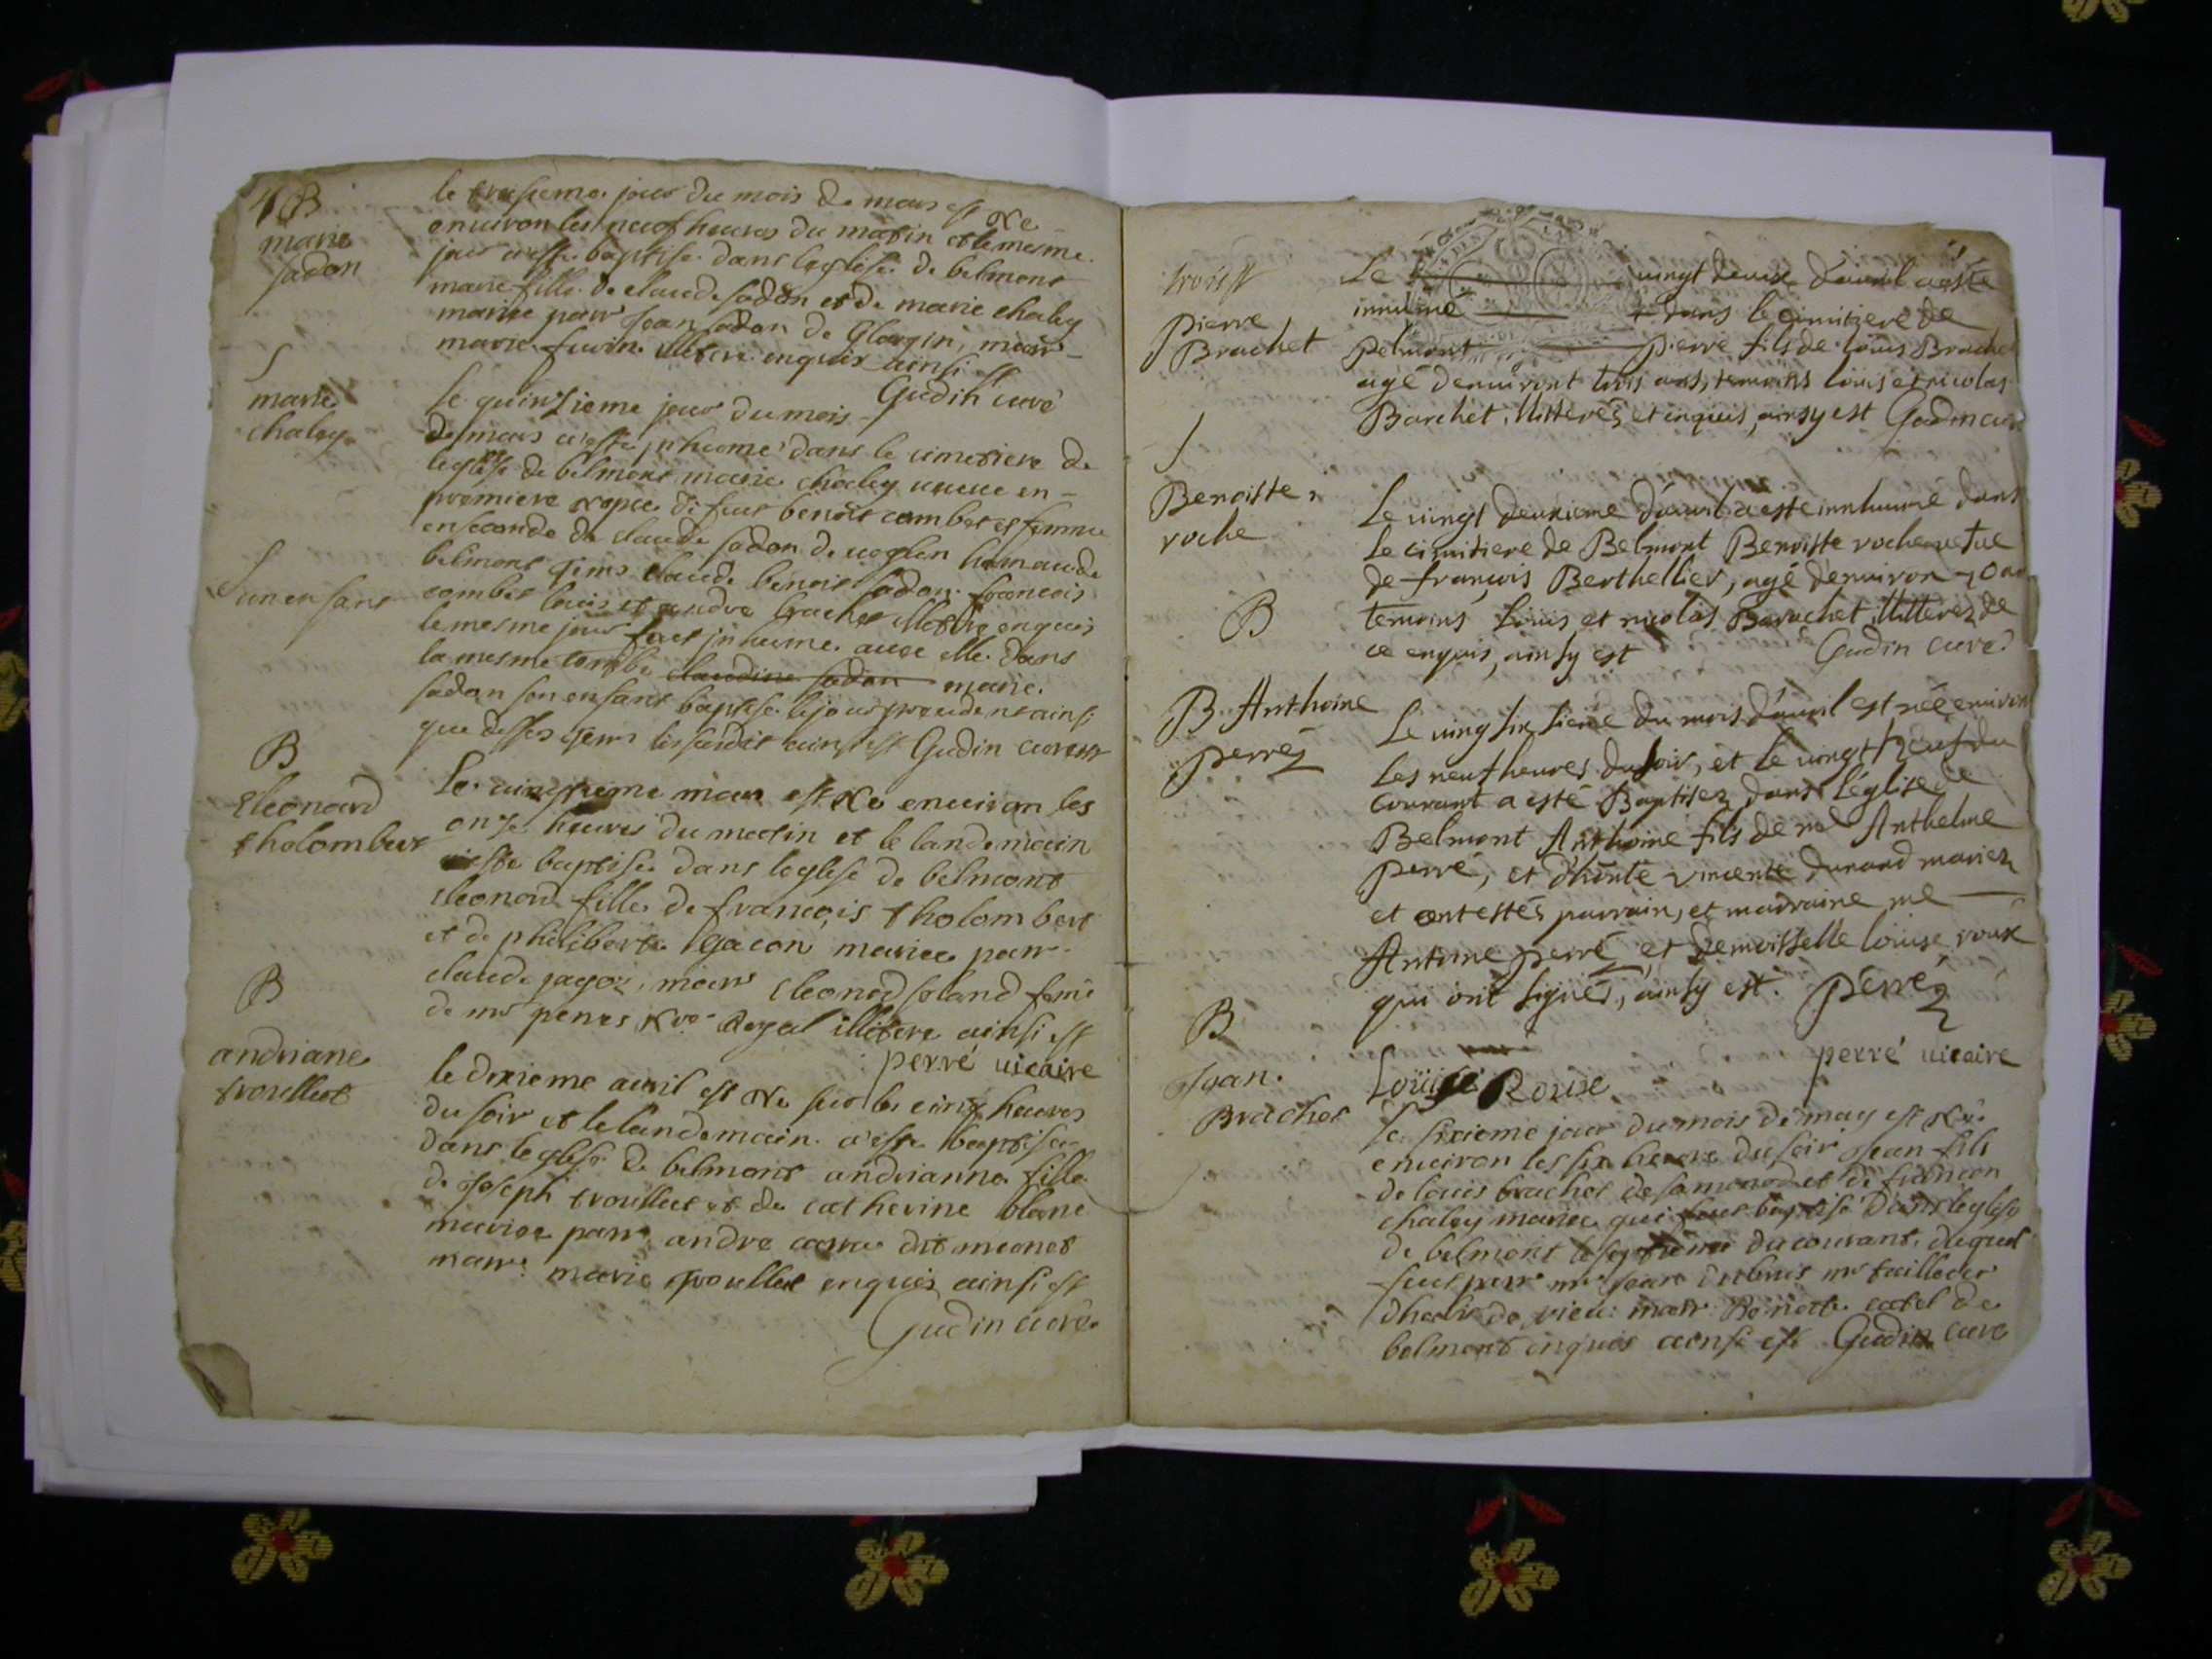 B
marie
sadon
le troisieme jour du mois de mars est ne
environ les neuf heures du matin et le mesme
jour a este baptise dans leglise de belmont
marie fille de claude sadon et de marie chaley
mariee parr Jean sadon de marr
marie illitere enquis ainsi est
Gudin curé
S
marie
chaley
le quinzieme jour du mois
de mars a este inhume dans le cimetiere de
leglise de belmont marie chaley veuve en
premiere nopce de feu benoit combet et femme
en seconde de claude sadon de
belmont claude benoit sadon francois
combet louis et andre brachet illitere enquis
S un enfant
le mesme jour fut inhume avec elle dans
la mesme tombe claudine sadon marie
sadon son enfant baptise le jour precedent ainsi
que dessus ainsi est Gudin cure
B
Eleonard
tholombert
Le cinquieme mars est ne environ les
onze heures du matin et le landemain
a este baptise dans leglise de belmont
eleonard fille de françois tholombert
et de philiberte gacon mariee parr
claude marr eleonard femme
de mr Royal illitere ainsi est
perré vicaire
B
andriane
troullet
le dixieme avril est ne sur les cinq heures
du soir et le landemain a este baptisee
dans leglise de belmont andrianne fille
de Joseph troullet et de catherine blanc
mariee parr andre dit
marr marie troullet enquis ainsi est
Gudin curé
trois
pierre
Brachet
Le vingt deuxe d'avril a esté
innumé dans le cimitiere de
Belmont pierre fils de Louis Brachet
agé d'environt trois ans, temoins louis et nicolas
Barchet illitterés et enquis, ainsy est Gudin curé
S
Benoiste
roche
Le vingt deuxieme d'avril a este innhumé dans
le cimitiere de Belmont Benoiste roche vefue
de françois Berthellier, agé d'environ 70 ans
temoins Louis et nicolas Barachet illitterez de
ce enquis, ainsy est Gudin curé
B
B Anthoine
perréz
Le vingt sixieme du mois d'avril est née environ
les neuf heures du soir, et le vingt neuf du
courant a esté Baptisez dans l'église de
Belmont Anthoine fils de me Anthelme
perré, et d'honte vincente durand mariez
et ont estés parrain, et marraine me
Antoine perré et demoisselle louise roux
qui ont signés, ainsy est. perréz
perré vicaire
Louise Rouse
B
Jean
Brachet
Le sixieme jour du mois de may est né
environ les six heures du soir Jean fils
de louis brachet de et de
chaley mariee qui fut baptisé dans leglise
de belmont le septieme du courant, duquel
fut parr mr
de vieu marr Benoite catel de
belmont enquis ainsi est Gudin curé